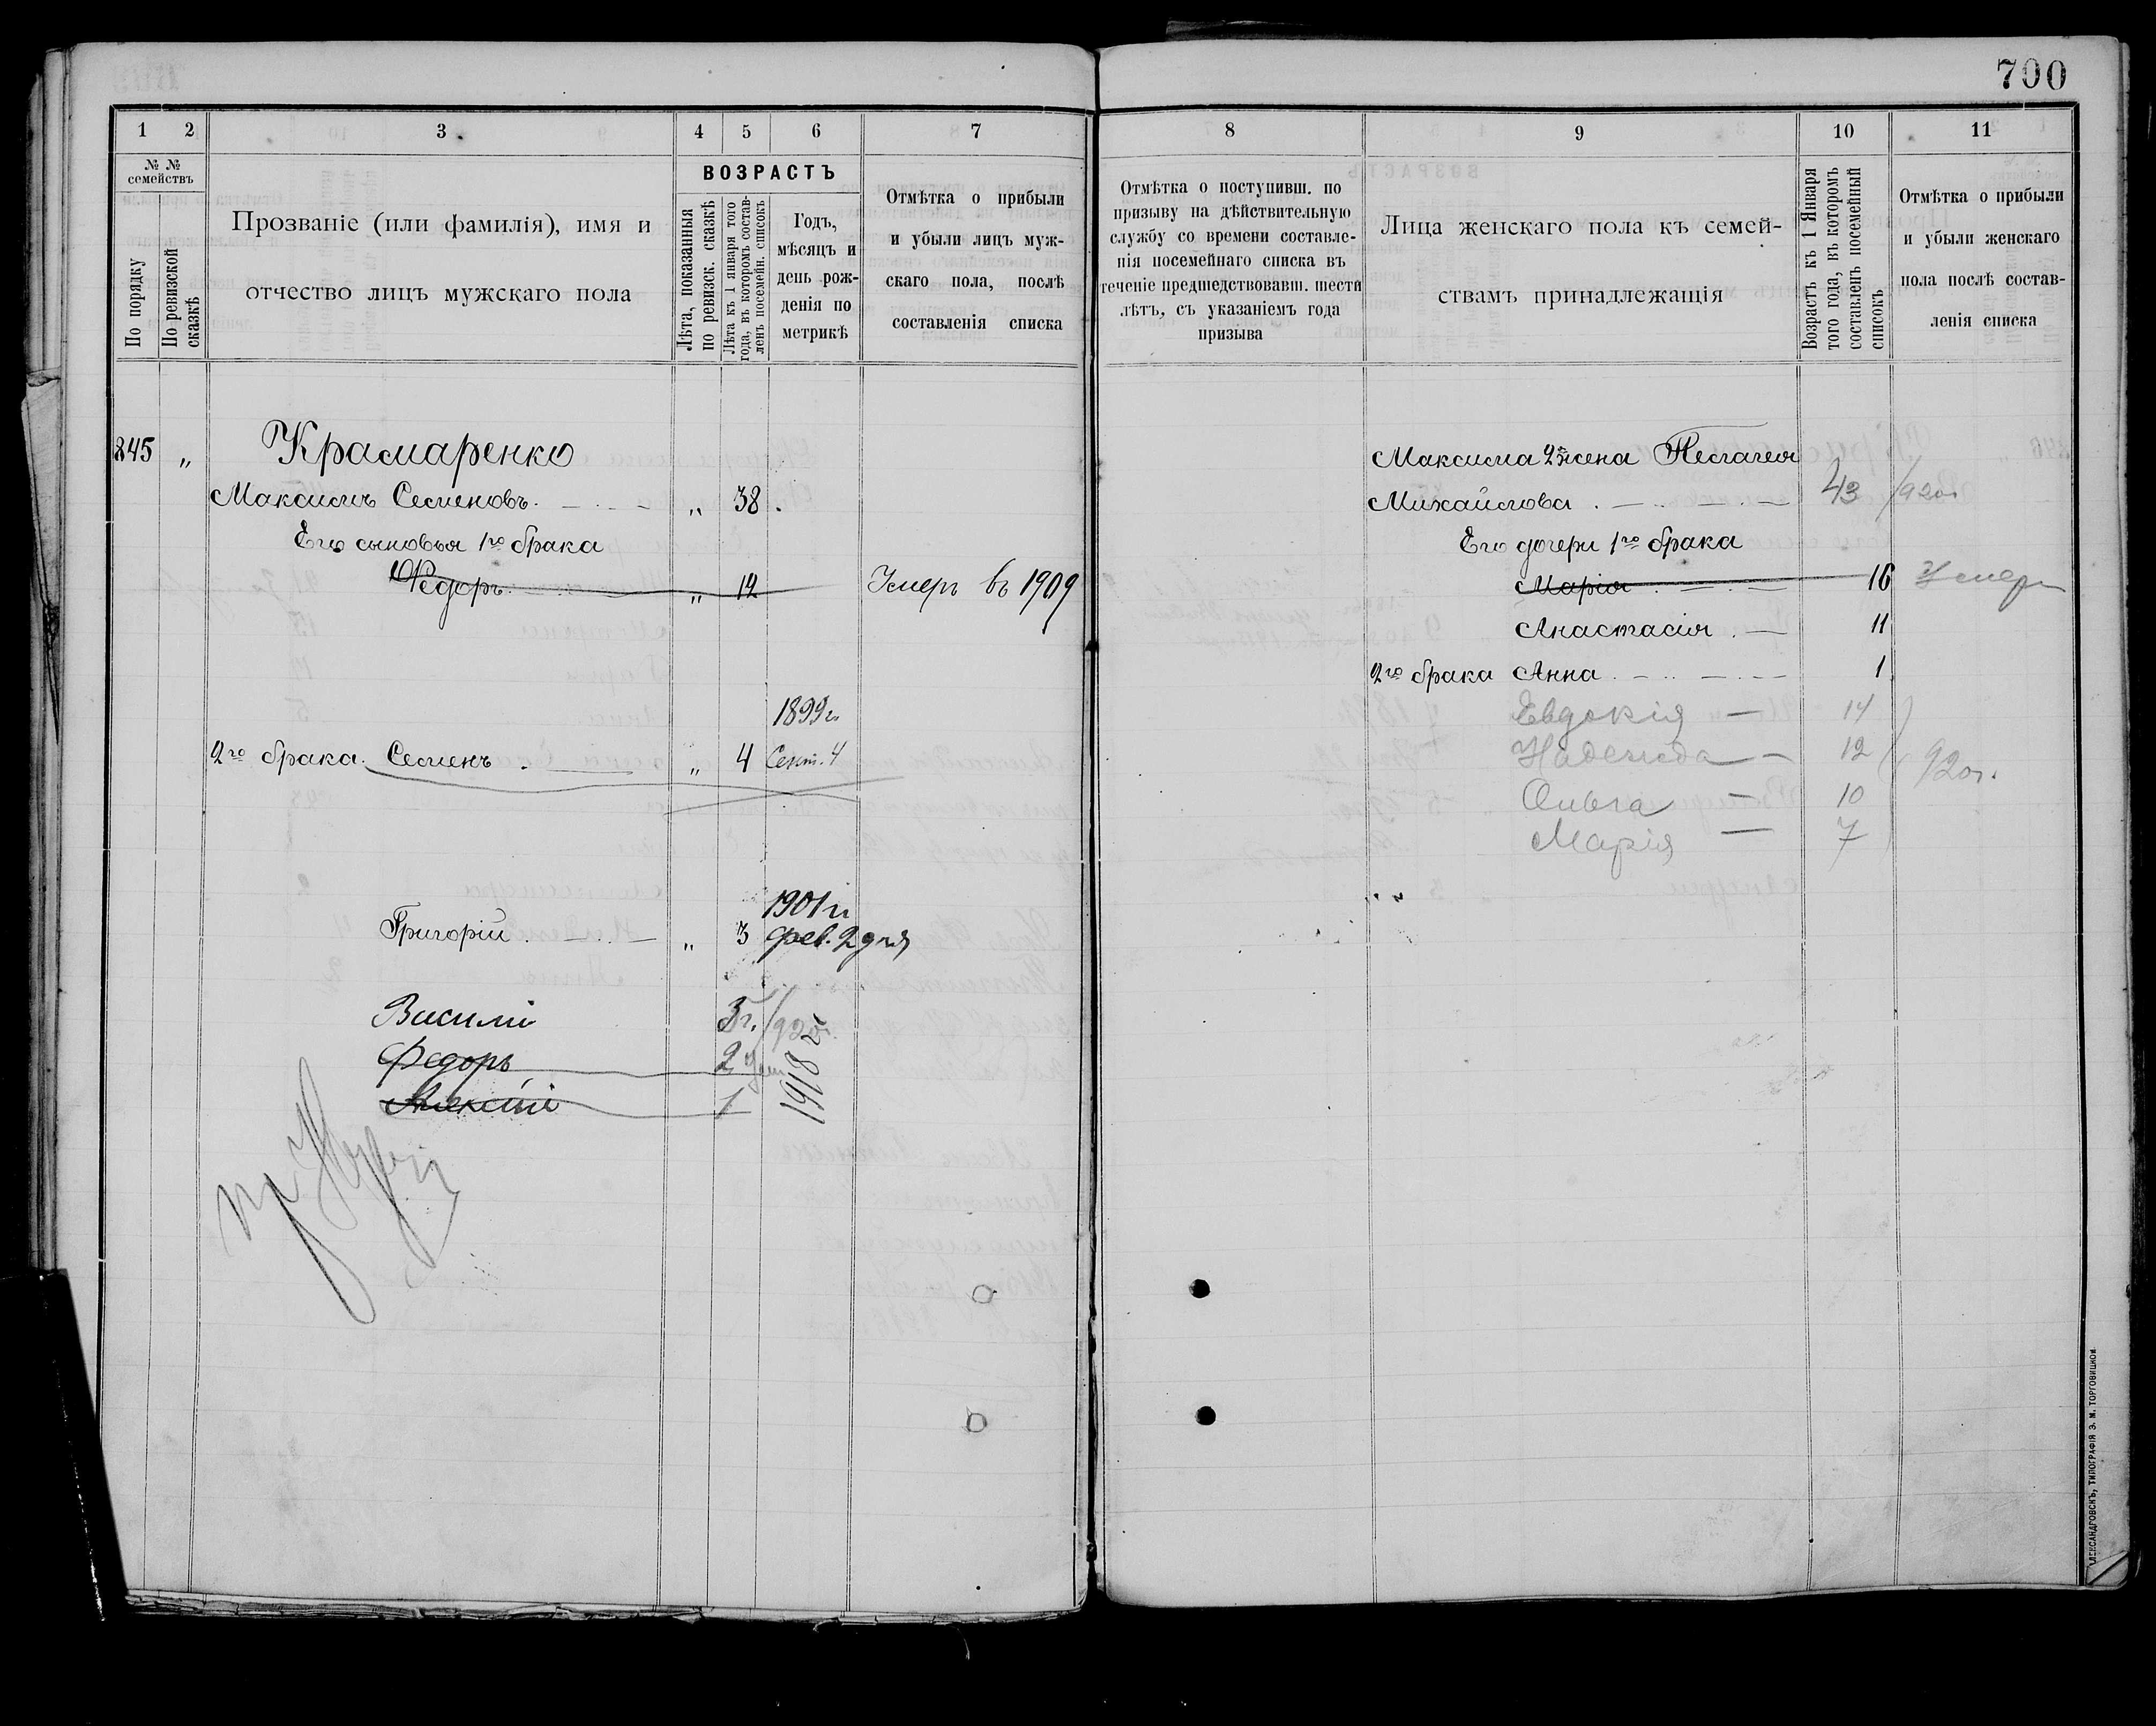 700
1
2
3
4
5
6
7
8
9
10
11
№ №
семействъ
По порядку
По ревизской
сказкѣ
Прозваніе (или фамилія), имя и
отчество лицъ мужскаго пола
ВОЗРАСТЪ
Лѣта, показанныя
по ревизск. сказкѣ
Лѣта къ 1 января того
года, въ которомъ состав-
ленъ посемейн. списокъ
Годъ,
мѣсяцъ и
день рож-
денія по
метрикѣ
Отмѣтка о прибыли
и убыли лицъ муж-
скаго пола, послѣ
составленія списка
Отмѣтка о поступивш. по
призыву на дѣйствительную
службу со времени составле-
нія посемейнаго списка въ
теченіе предшедствовавш. шести
лѣтъ, съ указаніемъ года
призыва
Лица женскаго пола къ семей-
ствамъ принадлежащія
Возрастъ къ 1 Января
того года, въ которомъ
составленъ посемейный
списокъ
Отмѣтка о прибыли
и убыли женскаго
пола послѣ состав-
ленія списка
845 „ Крамаренко
Максимъ Семеновъ. „ 38
Его сыновья 1го брака
Федоръ „ 12 Умеръ въ 1909
1899 г.
2го брака Семенъ „ 4 Сент. 4
1901 г.
Григорій „ 3 фев. 2 дня
Василій 3 г. /920 г.
Федоръ 2
Алексѣй 1
1918 г.
Максима 2я жена Пелагея
Михайлова 43 /920 г.
Его дочери 1го брака
Марія 16 Умерл
Анастасія 11
2го брака Анна 1
Евдокія — 14
Надежда — 12
Ольга — 10
Марія — 7
920 г.
АЛЕКСАНДРОВСКЪ, ТИПОГРАФІЯ З. М. ТОРГОВИЦКОЙ